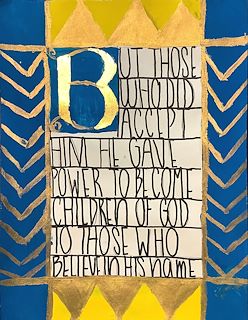 BUT THOSE
WHO DID
ACCEPT
HIM HE GAVE
POWER TO BECOME
CHILDREN OF GOD
TO THOSE WHO
BELIEVE IN HIS NAME